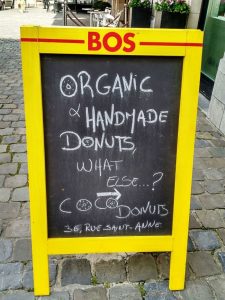 BOS
ORGANIC
& HANDMADE
DONUTS,
WHAT
ELSE...?
COCO DONUTS
36, RUE SAINT-ANNE